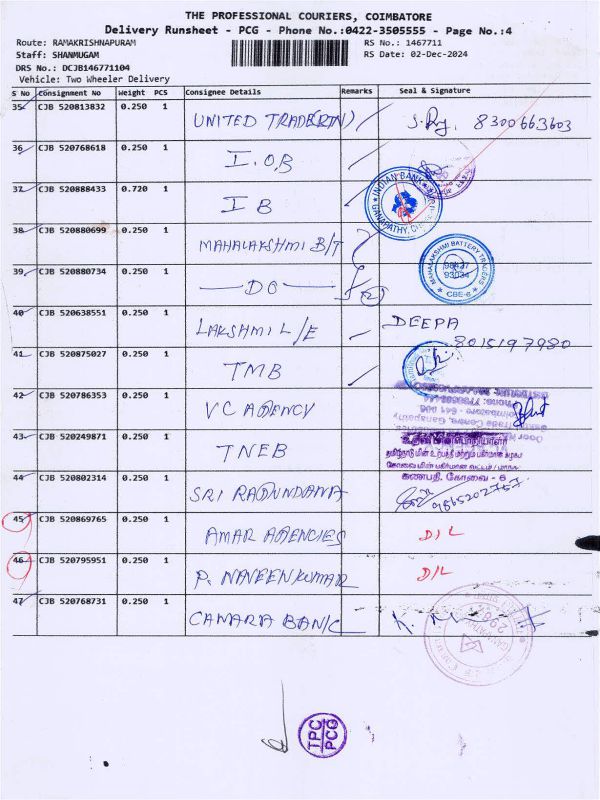 THE PROFESSIONAL COURIERS, COIMBATORE
Delivery Runsheet - PCG - Phone No.:0422-3505555 - Page No.:4
Route: RAMAKRISHNAPURAM RS No.: 1467711
Staff: SHANMUGAM RS Date: 02-Dec-2024
DRS No.: DCJB146771104
Vehicle: Two Wheeler Delivery
S No Consignment No Weight PCS Consignee Details Remarks Seal & Signature
35 CJB 520813832 0.250 1 UNITED TRADE(RTN) 8300663603
36 CJB 520768618 0.250 1 I.O.B
37 CJB 520888433 0.720 1 I B
INDIAN BANK
GANAPATHY
38 CJB 520880699 0.250 1 MAHALAKSHMI B/T
MAHALAKSHMI BATTERY TRADERS
98437
93034
CBE-6
39 CJB 520880734 0.250 1 DO (2)
40 CJB 520638551 0.250 1 LAKSHMI L/E DEEPA
8015197980
41 CJB 520875027 0.250 1 TMB
42 CJB 520786353 0.250 1 VC AGENCY
43 CJB 520249871 0.250 1 TNEB
தமிழ்நாடு மின் உற்பத்தி மற்றும் பகிர்மான கழகம்
கணபதி. கோவை - 6
44 CJB 520802314 0.250 1 SRI RAGUNDANA 9865202757
45 CJB 520869765 0.250 1 AMAR AGENCIES D/L
46 CJB 520795951 0.250 1 P. NAVEEN KUMAR D/L
47 CJB 520768731 0.250 1 CANARA BANK
TPC
PCG